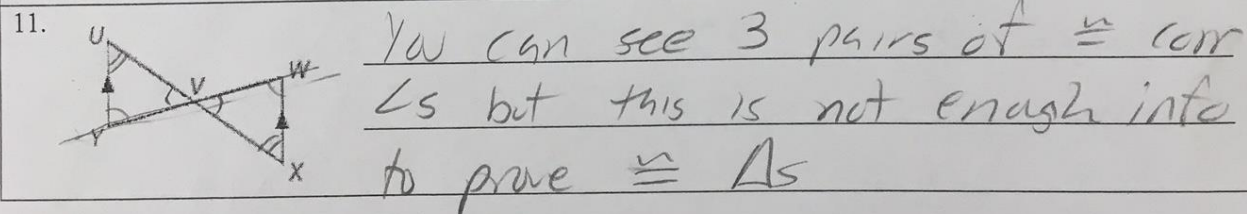 11.
U
V
W
Y
X
You can see 3 pairs of ≅ corr
∠s but this is not enough info
to prove ≅ Δs